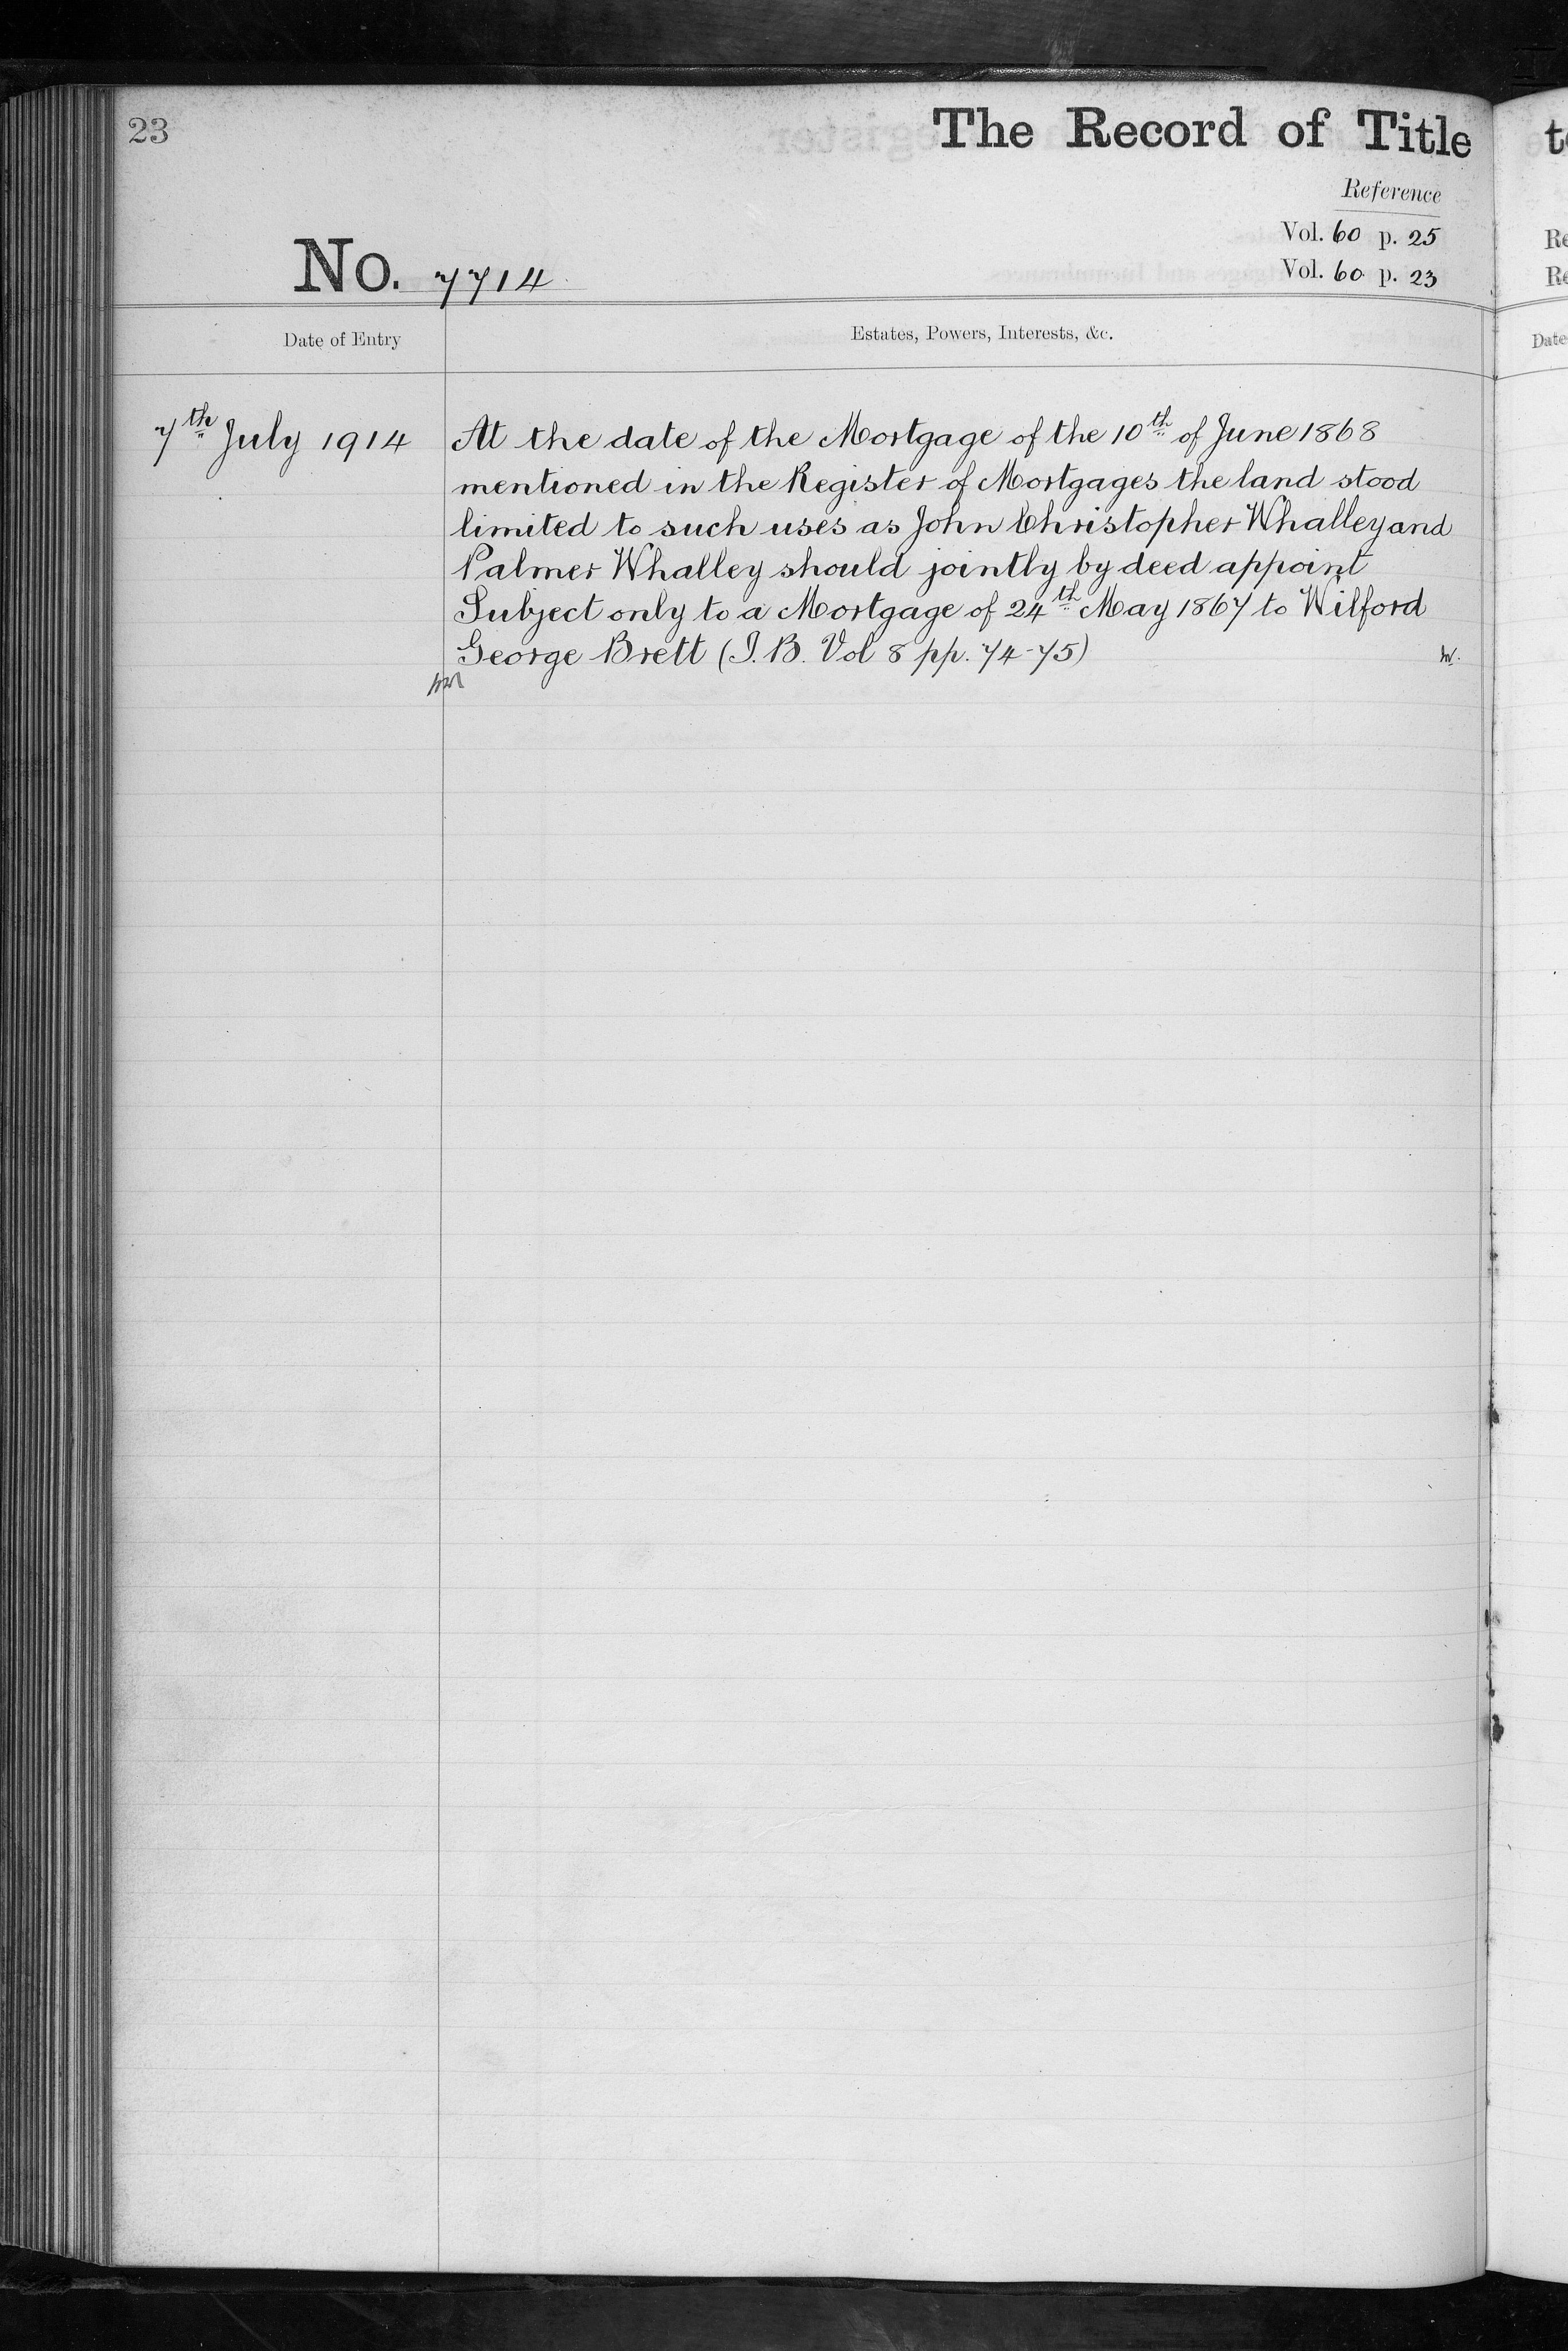 23
The Record of Title
Reference
Vol. 60 p. 25
Vol. 60 p. 23
No. 7714
Date of Entry
Estates, Powers, Interests, &c.
7th July 1914
At the date of the Mortgage of the 10th of June 1868
mentioned in the Register of Mortgages the land stood
limited to such uses as John Christopher Whalley and
Palmer Whalley should jointly by deed appoint
Subject only to a Mortgage of 24th May 1867 to Wilford
George Brett (I. B. Vol 8 pp. 74-75)
Re
Re
Date